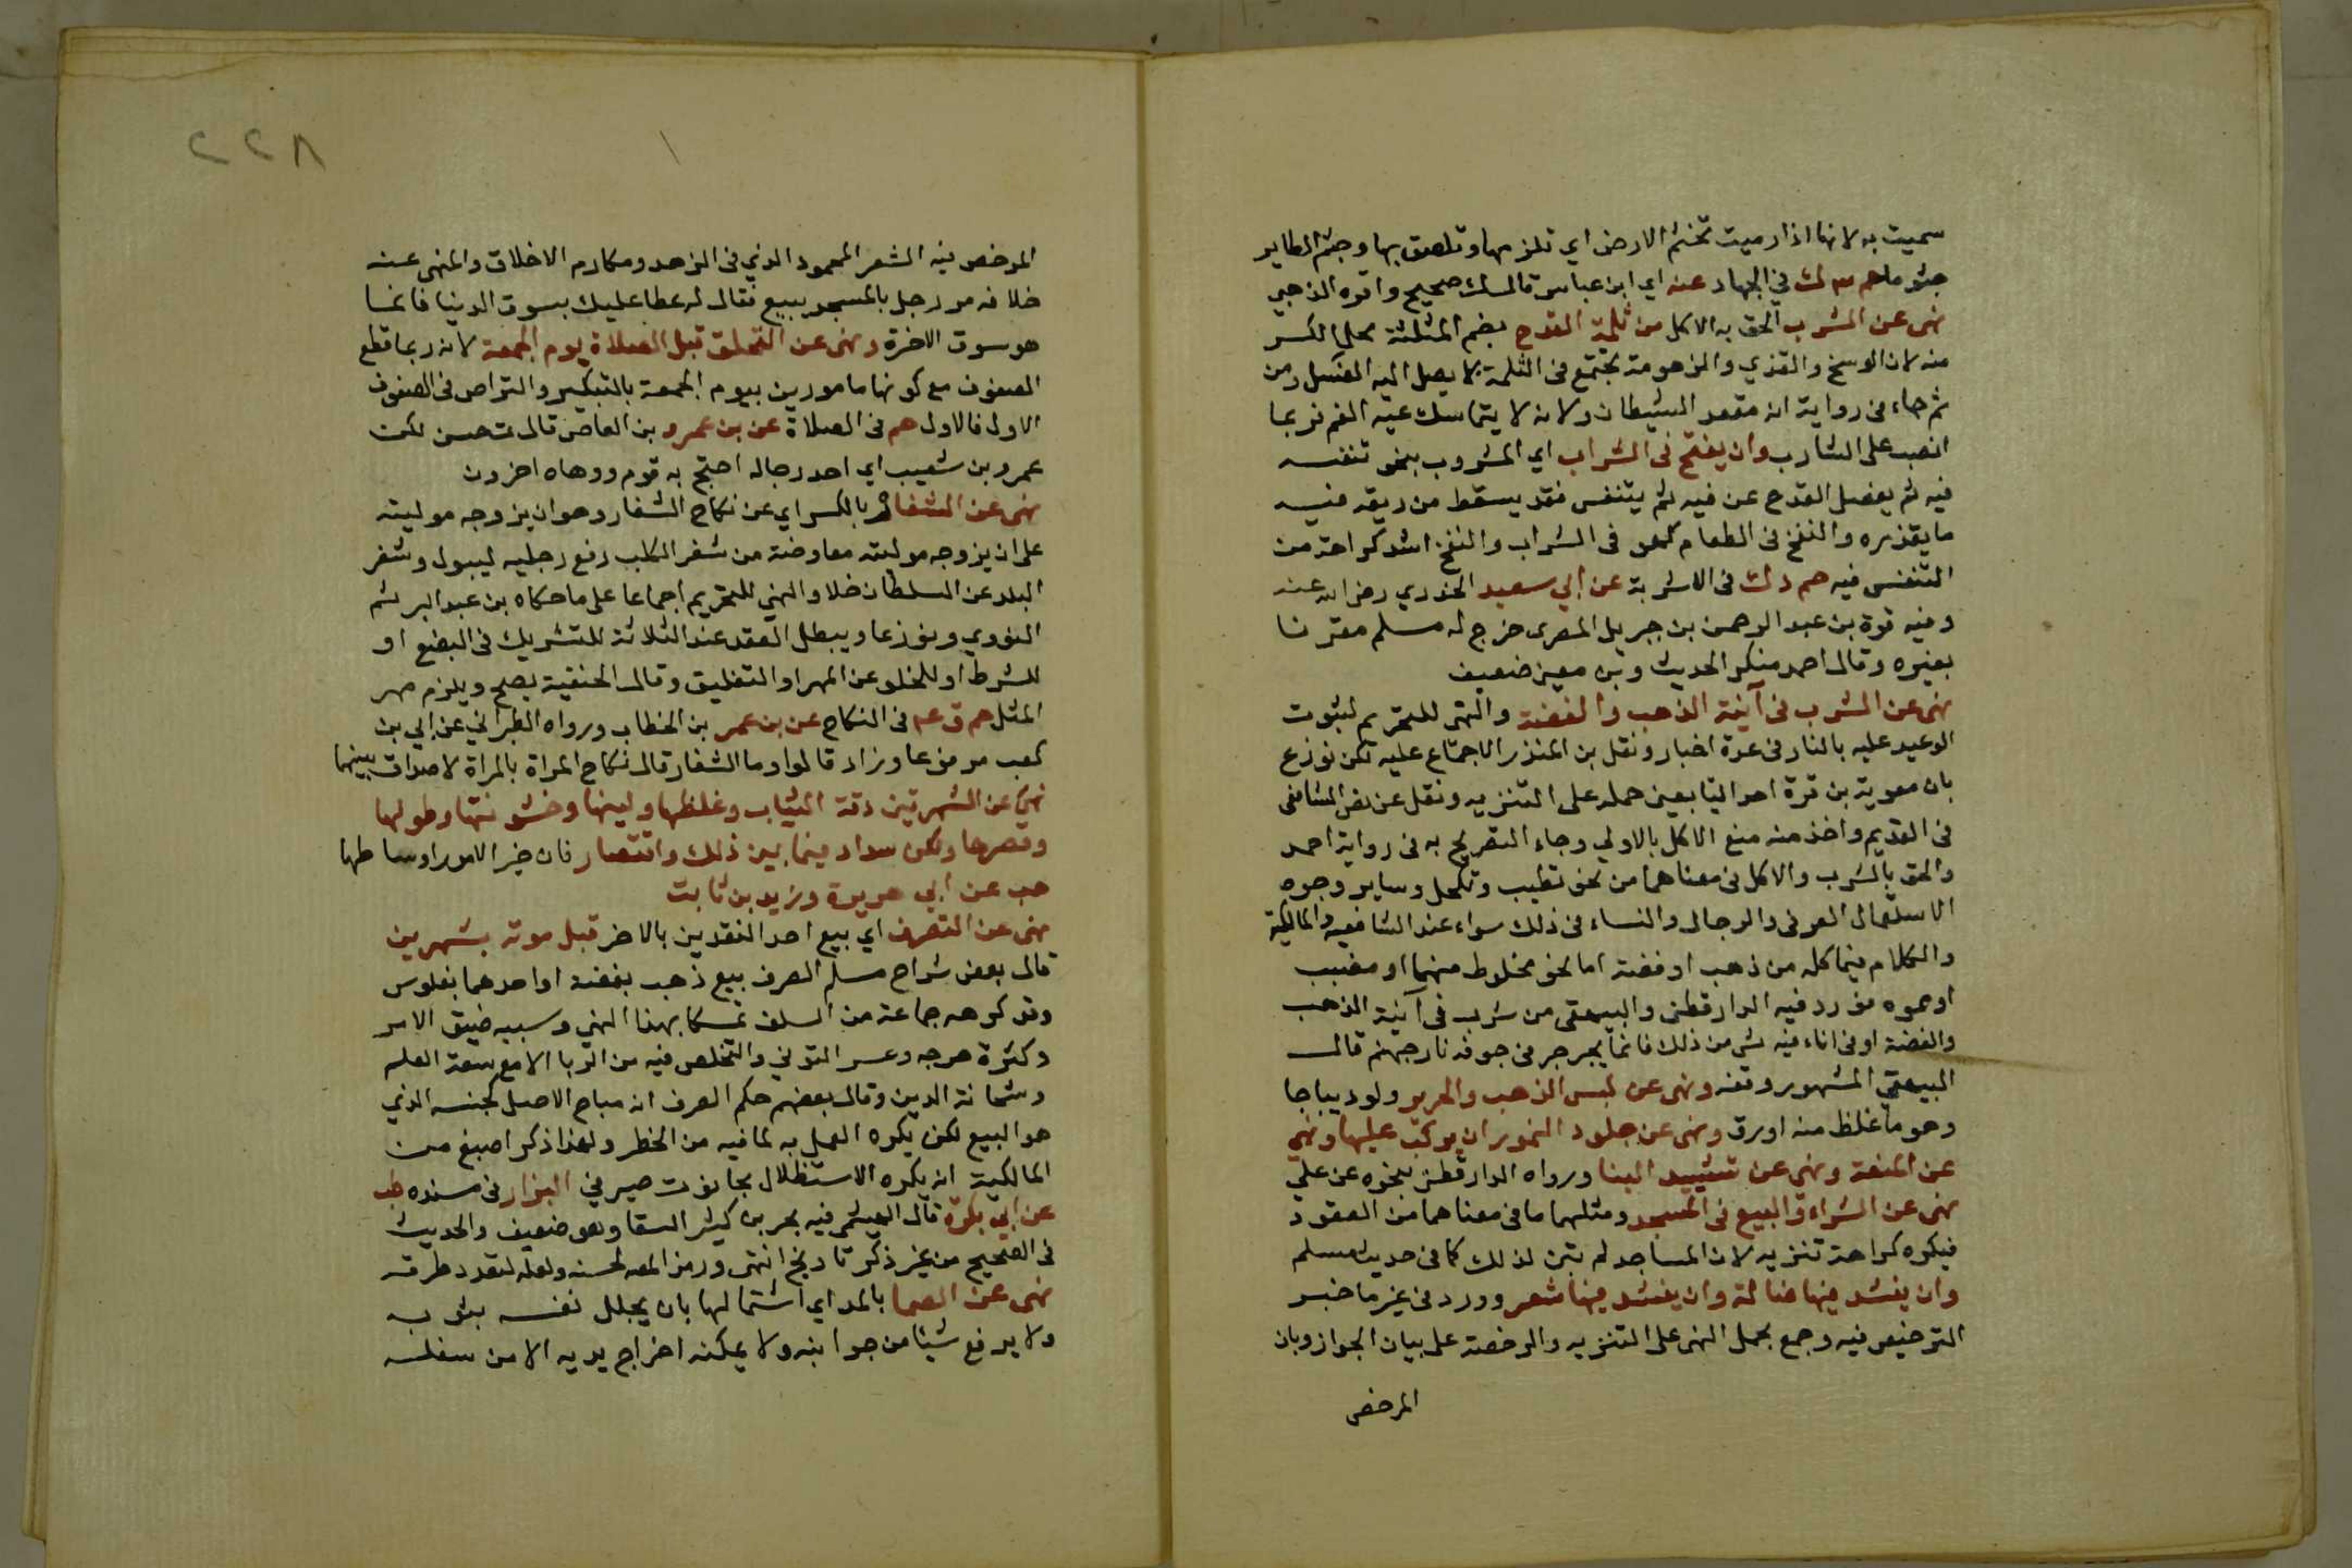 سميت به لانها اذا رميت تجثم الارض اي تلزمها وتلصق بها وجثم الطاير
جثوما حم م ت في الجهاد عنه اي ابن عباس قال ك صحيح واقره الذهبي
نهى عن الشرب الحق به الاكل من ثلمة القدح بضم المثلثة محل الكسر
منه لان الوسخ والقذي والزهومة تجتمع في الثلمة لا يصل اليه الغسل ومن
ثم جاء في رواية انه مقعد الشيطان ولانه لا يتماسك عليه الفم فربما
انصب على الشارب وان ينفخ في الشراب اي المشروب بنحو تنفسه
فيه ثم يفصل القدح عن فيه ثم يتنفس فقد يسقط من ريقه فيه
ما يقذره والنفخ في الطعام كهو في الشراب والنفخ اشد كراهة من
التنفس فيه حم د ك في الاشربة عن ابي سعيد الخدري رضي الله عنه
وفيه قرة بن عبد الرحمن بن جبريل المصرى خرج له مسلم مقترنا
بغيره وقال احمد منكر الحديث وبن معين ضعيف
نهى عن الشرب في آنية الذهب والفضة والنهى للتحريم لثبوت
الوعيد عليه بالنار في عدة اخبار ونقل بن المنذر الاجماع عليه لكن نوزع
بان معوية بن قرة احد التابعين حمله على التنزيه ونقل عن نص الشافعى
في القديم واخذ منه منع الاكل بالاولي وجاء التصريح به في رواية احمد
والحق بالشرب والاكل في معناهما من نحو تطيب وتكحل وساير وجوه
الاستعمال العرفى والرجال والنساء في ذلك سواء عند الشافعية والمالكية
والكلام فيما كله من ذهب او فضة اما نحو مخلوط منهما او مضبب
او مموه فورد فيه الدارقطنى والبيهقى من شرب في آنية الذهب
والفضة او في اناء فيه شي من ذلك فانما يجرجر في جوفه نار جهنم قال
البيهقي المشهور وقفه ونهى عن لبس الذهب والحرير ولو ديباجا
وهو ما غلظ منه او رق ونهى عن جلود النمور ان يركب عليها ونهى
عن المتعة ونهى عن تشييد البنا ورواه الدارقطنى بنحوه عن علي
نهى عن الشراء والبيع في المسجد ومثلهما ما في معناهما من العقود
فيكره كراهة تنزيه لان المساجد لم تبن لذلك كما في حديث مسلم
وان ينشد فيها ضالة وان ينشد فيها شعر وورد في غير ما خبر
الترخيص فيه وجمع بحمل النهى على التنزيه والرخصة على بيان الجواز وبان
المرخص
٢٢٨
المرخص فيه الشعر المحمود الذي في الزهد ومكارم الاخلاق والمنهى عنه
خلافه مر رجل بالمسجد يبيع فقال له عطا عليك بسوق الدنيا فانما
هو سوق الاخرة ونهى عن التحلق قبل الصلاة يوم الجمعة لانه ربما قطع
الصفوف مع كونها مامورين بيوم الجمعة بالتبكير والتراص في الصفوف
الاول فالاول حم في الصلاة عن بن عمرو بن العاص قال ت حسن لكن
عمرو بن شعيب اي احد رجاله احتج به قوم ووهاه اخرون
نهى عن الشغار بالكسر اي عن نكاح الشغار وهو ان يزوجه موليته
على ان يزوجه موليته معاوضة من شغر الكلب رفع رجليه ليبول وشغر
البلد عن السلطان خلا والنهي للتحريم اجماعا على ما حكاه بن عبد البر ثم
النووي ونوزعا ويبطل العقد عند الثلاثة للتشريك في البضع او
للشرط او للخلو عن المهر او التعليق وقال الحنفية يصح ويلزم مهر
المثل حم ق عه في النكاح عن بن عمر بن الخطاب ورواه الطبراني عن ابي بن
كعب مرفوعا وزاد قالوا وما الشغار قال نكاح المراة بالمراة لا صداق بينهما
نهي عن الشهرتين دقة الثياب وغلظها ولينها وخشونتها وطولها
وقصرها ولكن سداد فيما بين ذلك واقتصار فان خير الامور اوساطها
هب عن ابي هريرة وزيد بن ثابت
نهى عن الصرف اي بيع احد النقدين بالاخر قبل موته بشهرين
قال بعض شراح مسلم الصرف بيع ذهب بفضة او احدهما بفلوس
وقد كرهه جماعة من السلف تمسكا بهذا النهي وسببه ضيق الامر
وكثرة حرجه وعسر التوقي والتخلص فيه من الربا الا مع سعة العلم
ومتانة الدين وقال بعضهم حكم الصرف انه مباح الاصل لجنسه الذي
هو البيع لكن يكره العمل به لما فيه من الخطر ولهذا ذكر اصبغ من
المالكية انه يكره الاستظلال بحانوت صيرفي البزار في مسنده طب
عن ابي بكرة قال الهيثمى فيه بحر بن كنيز السقا وهو ضعيف والحديث
في الصحيح من غير ذكر تاريخ انتهى ورمز المص لحسنه ولعله لتعدد طرقه
نهى عن الصما بالمد اي اشتمالها بان يجلل نفسه بثوبه
ولا يرفع شيئا من جوانبه ولا يمكنه اخراج يديه الا من سفله